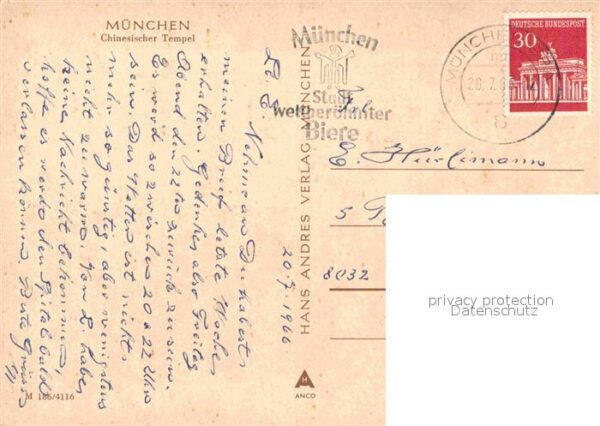 MÜNCHEN
Chinesischer Tempel
L. E.
Nehme an Du habest
meinen Brief letzte Woche
erhalten. Gedenke also Freitag
Abend den 22ten zurück zu sein.
Es werd so zwischen 20 & 22 Uhr
sein. Das Wetter ist nicht
mehr so günstig, aber wenigstens
nicht zu warm. Von L. habe
keine Nachricht bekommen,
hoffe es werde den Spital bald
verlassen können. Beste Grüsse
20.7.1966
M 186/4116
HANS ANDRES VERLAG MÜNCHEN
ANCO
München
Stadt
weltberühmter
Biere
MÜNCHE
20.7.6
8
DEUTSCHE BUNDESPOST
30
E. Hürlimann
5
8032
privacy protection
Datenschutz